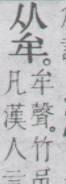 从牟。
牟聲。竹
凡漢人